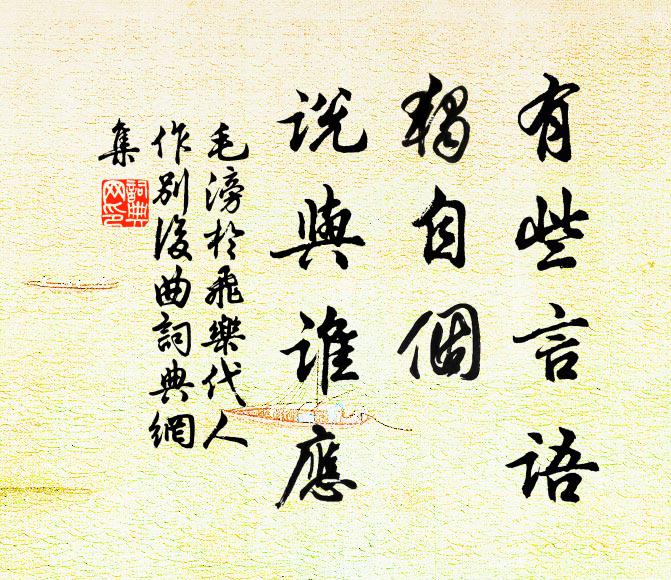 有些言語
獨自個
說與誰應
毛滂於飛樂代人
作別後曲詞典網
集
詞典
网印